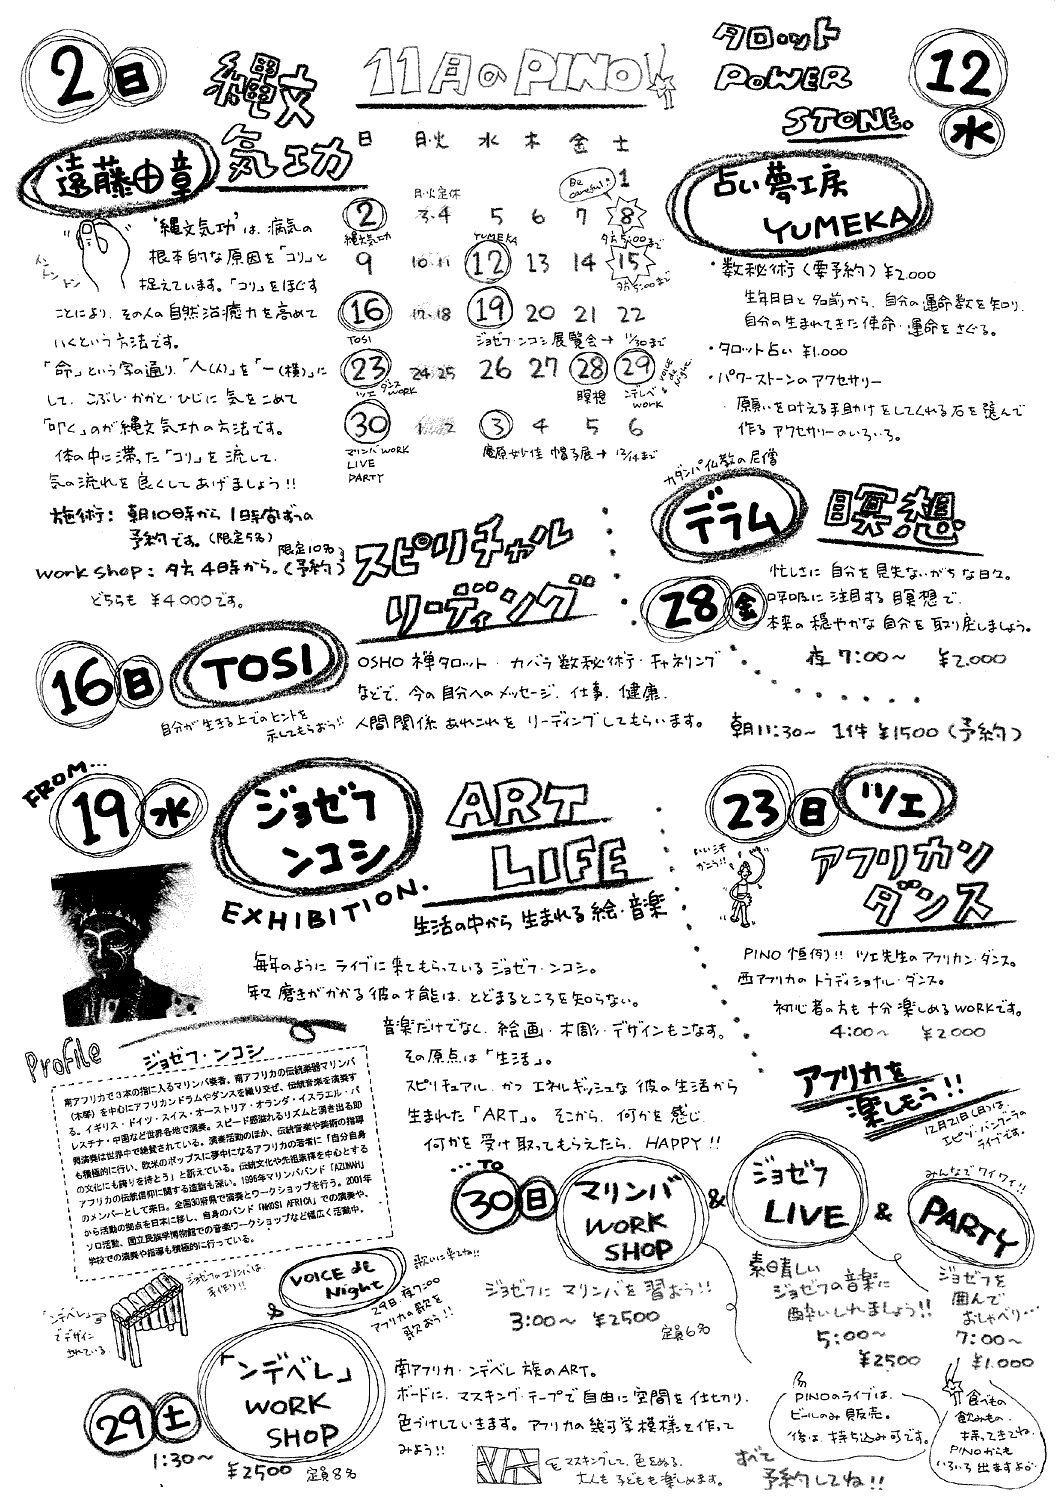 11月のPINO!
2日
縄文
気功
遠藤由章
トントントン
"縄文気功"は、病気の
根本的な原因を「コリ」と
捉えています。「コリ」をほぐす
ことにより、その人の自然治癒力を高めて
いくという方法です。
「命」という字の通り、「人(人)」を「一(横)」に
して、こぶし・かかと・ひじに気をこめて
「叩く」のが縄文気功の方法です。
体の中に滞った「コリ」を流して、
気の流れを良くしてあげましょう!!
施術: 朝10時から1時間ずつの
予約です。(限定5名)
限定10名
work shop: 夕方4時から。(予約)
どちらも ¥4.000です。
日 月火 水 木 金 土
Be careful!
1
月・火定休
2 3・4 5 6 7 8
縄文気功 YUMEKA 夕方5:00まで
9 10・11 12 13 14 15
夕方5:00まで
16 17・18 19 20 21 22
TOSI ジョゼフ・ンコシ展覧会→11/30まで
23 24・25 26 27 28 29
ツエ ダンスWORK 瞑想 ンデベレwork voice de Night
30 1・2 3 4 5 6
マリンバWORK
LIVE
PARTY
帽子展→12/14まで
タロット
POWER
STONE.
12水
占い夢工房
YUMEKA
・数秘術(要予約)¥2.000
生年月日と名前から、自分の運命数を知り、
自分の生まれてきた使命・運命をさぐる。
・タロット占い ¥1.000
・パワーストーンのアクセサリー
願いを叶える手助けをしてくれる石を選んで
作るアクセサリーのいろいろ。
カダンパ仏教の尼僧
デラム
瞑想
28金
忙しさに自分を見失ないがちな日々。
呼吸に注目する瞑想で、
本来の穏やかな自分を取り戻しましょう。
夜7:00〜 ¥2.000
スピリチャル
リーディング
16日
TOSI
自分が生きる上でのヒントを
示してもらおう!!
OSHO禅タロット・カバラ数秘術・チャネリング
などで、今の自分へのメッセージ、仕事、健康、
人間関係あれこれをリーディングしてもらいます。
朝11:30〜 1件¥1500(予約)
FROM...
19水
ジョゼフ
ンコシ
EXHIBITION.
ART
LIFE
生活の中から生まれる絵・音楽
毎年のようにライブに来てもらっているジョゼフ・ンコシ。
年々磨きがかかる彼の才能は、とどまるところを知らない。
音楽だけでなく、絵画・木彫・デザインもこなす。
その原点は「生活」。
スピリチュアル、かつエネルギッシュな彼の生活から
生まれた「ART」。そこから、何かを感じ、
何かを受け取ってもらえたら、HAPPY!!
Profile
ジョゼフ・ンコシ
南アフリカで3本の指に入るマリンバ奏者。南アフリカの伝統楽器マリンバ
(木琴)を中心にアフリカンドラムやダンスを織り交ぜ、伝統音楽を演奏す
る。イギリス・ドイツ・スイス・オーストリア・オランダ・イスラエル・パ
レスチナ・中国など世界各地で演奏。スピード感溢れるリズムと湧き出る即
興演奏は世界中で絶賛されている。演奏活動のほか、伝統音楽や美術の指導
も積極的に行い、欧米のポップスに夢中になるアフリカの若者に「自分自身
の文化にも誇りを持とう」と訴えている。伝統文化や先祖崇拝を中心とする
アフリカの伝統信仰に関する造詣も深い。1995年マリンババンド「AZUMAH」
のメンバーとして来日。全国30府県で演奏とワークショップを行う。2001年
から活動の拠点を日本に移し、自身のバンド「NKOSI AFRICA」での演奏や、
ソロ活動、国立民族学博物館での音楽ワークショップなど幅広く活動中。
学校での演奏や指導も積極的に行っている。
23日
ツエ
いい汗かこう!!
アフリカン
ダンス
PINO恒例!! ツエ先生のアフリカン・ダンス。
西アフリカのトラディショナル・ダンス。
初心者の方も十分楽しめるWORKです。
4:00〜 ¥2000
アフリカを
楽しもう!!
12月21日(日)は、
エピゾ・バングーラの
ライブです。
...TO
30日
マリンバ
WORK
SHOP
&
ジョゼフ
LIVE
&
みんなでワイワイ!!
PARTY
ジョゼフにマリンバを習おう!!
3:00〜 ¥2500
定員6名
素晴しい
ジョゼフの音楽に
酔いしれましょう!!
5:00〜
¥2500
ジョゼフを
囲んで
おしゃべり…
7:00〜
¥1.000
PINOのライブは、
ビールのみ販売。
後は、持ち込み可です。
食べもの
飲みもの、
持ってきてね。
PINOからも
いろいろ出ますよ♡
すべて
予約してね!!
ジョゼフのマリンバは、
手作り!!
「ンデベレ」
でデザイン
されている。
&
VOICE de
Night
歌いに来てね!!
29日 夜7:00
アフリカの歌を
歌おう!!
29土
「ンデベレ」
WORK
SHOP
1:30〜
¥2500 定員8名
南アフリカ・ンデベレ族のART。
ボードに、マスキング・テープで自由に空間を仕切り、
色づけしていきます。アフリカの幾可学模様を作って
みよう!!
をマスキングして、色をぬる。
大人も子どもも楽しめます。